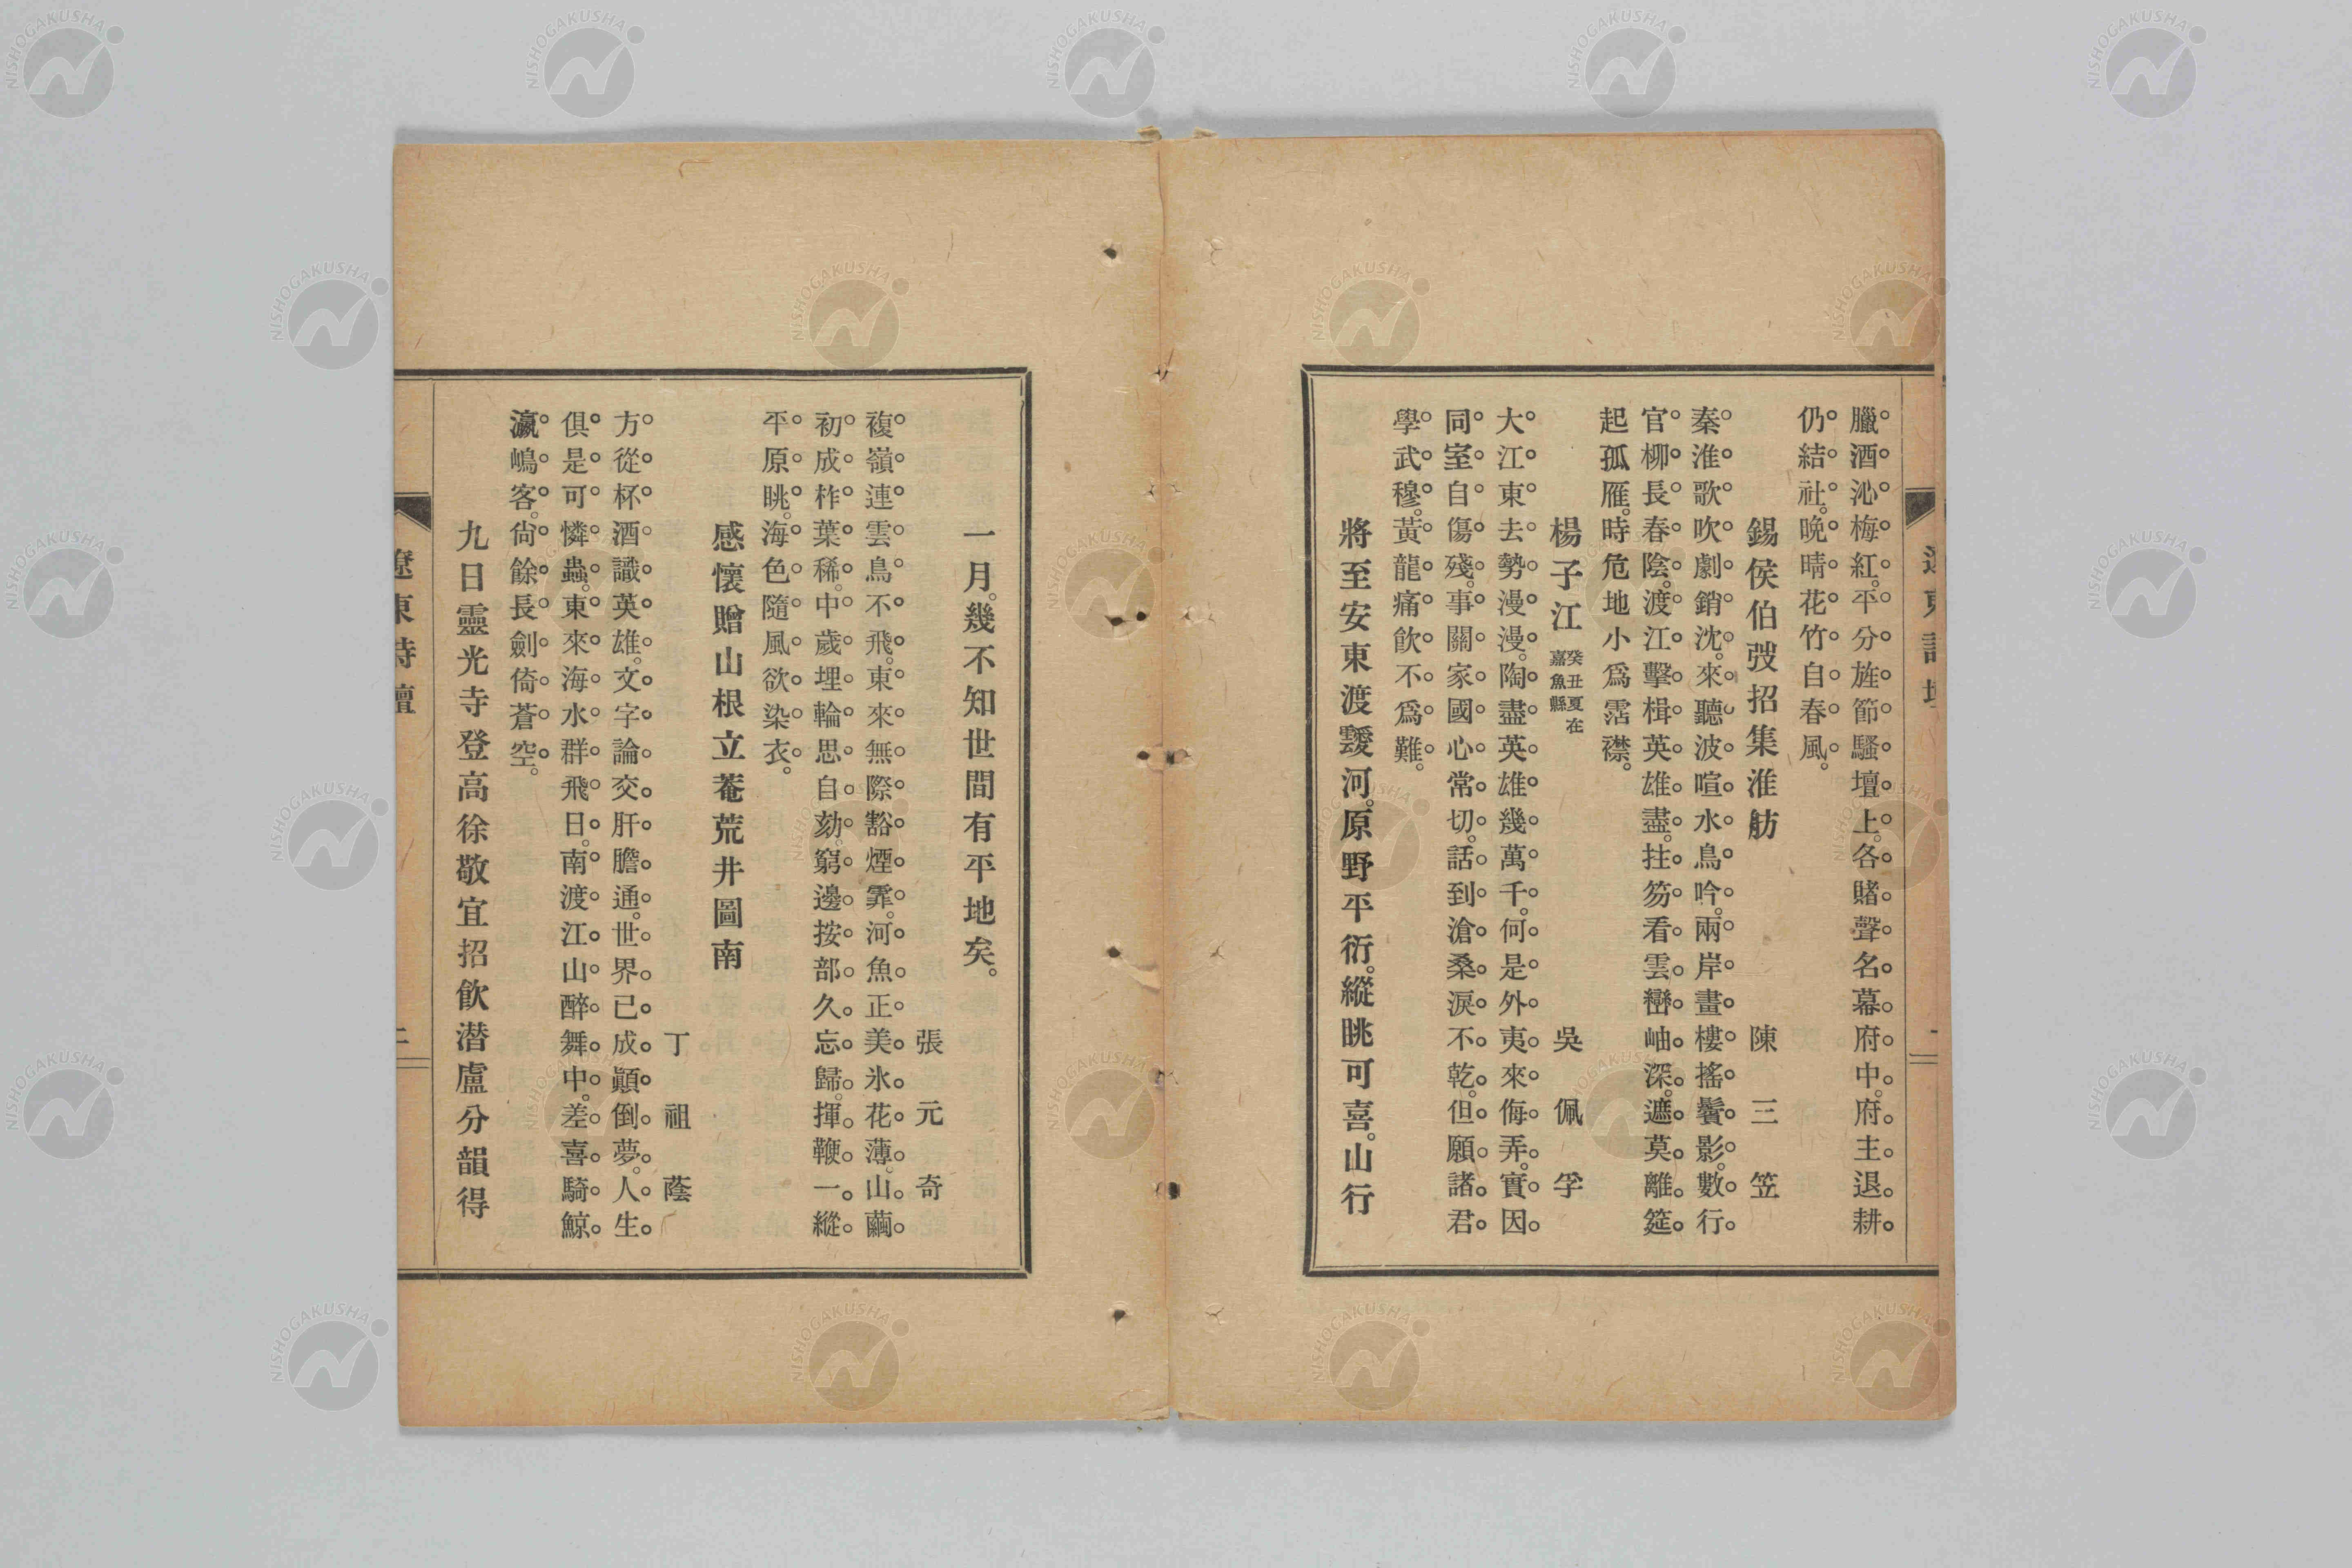 臘酒沁梅紅。平分旌節騷壇上。各賭聲名幕府中。府主退耕
仍結社。晚晴花竹自春風。
錫侯伯弢招集淮舫
陳三笠
秦淮歌吹劇銷沈。來聽波喧水鳥吟。兩岸畫樓搖鬢影。數行
官柳長春陰。渡江擊楫英雄盡。拄笏看雲巒岫深。遮莫離筵
起孤雁。時危地小爲霑襟。
楊子江
癸丑夏在
嘉魚縣
吳佩孚
大江東去勢漫漫。陶盡英雄幾萬千。何是外夷來侮弄。實因
同室自傷殘。事關家國心常切。話到滄桑淚不乾。但願諸君
學武穆。黃龍痛飲不爲難。
將至安東渡靉河。原野平衍。縱眺可喜。山行
一月。幾不知世間有平地矣。
張元奇
複嶺連雲鳥不飛。東來無際豁煙霏。河魚正美氷花薄。山繭
初成柞葉稀。中歲埋輪思自劾。窮邊按部久忘歸。揮鞭一縱
平原眺。海色隨風欲染衣。
感懷贈山根立菴荒井圖南
丁祖蔭
方從杯酒識英雄。文字論交肝膽通。世界已成顚倒夢。人生
俱是可憐蟲。東來海水群飛日。南渡江山醉舞中。差喜騎鯨
瀛嶋客。尙餘長劍倚蒼空。
九日靈光寺登高徐敬宜招飮潜盧分韻得
遼東詩壇
NISHOGAKUSHA